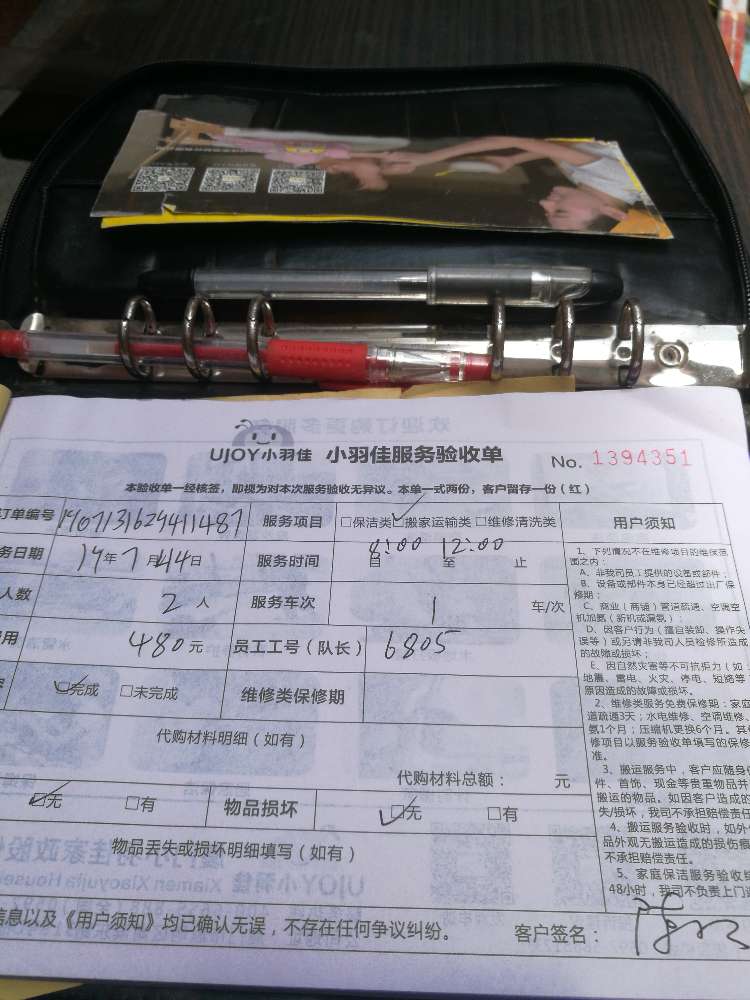 UJOY小羽佳 小羽佳服务验收单 No. 1394351
本验收单一经核签，即视为对本次服务验收无异议。本单一式两份，客户留存一份（红）
订单编号 服务项目 □保洁类 ☑搬家运输类 □维修清洗类
务日期 19年7月14日 服务时间 8:00 自 至 12:00 止
人数 2人 服务车次 1 车/次
用 480元 员工工号（队长） 6805
☑完成 □未完成 维修类保修期
代购材料明细（如有）
代购材料总额： 元
☑无 □有 物品损坏 ☑无 □有
物品丢失或损坏明细填写（如有）
信息以及《用户须知》均已确认无误，不存在任何争议纠纷。 客户签名：
用户须知
1、下列情况不在维修项目的维保范
围之内：
A、非我司员工提供的设备或部件；
B、设备或部件本身已经超过出厂保
修期；
C、商业（商铺）管道疏通、空调空
机加氨（新机或漏氨）；
D、因客户行为（擅自装卸、操作失
误等）或另请非我司人员检修所造成
的故障或损坏；
E、因自然灾害等不可抗拒力（如：
地震、雷电、火灾、停电、短路等
原因造成的故障或损坏。
2、维修类服务免费保修期：家庭
道疏通3天；水电维修、空调维修、
氨1个月；压缩机更换6个月。其
修项目以服务验收单填写的保修
准。
3、搬运服务中，客户应随身
件、首饰、现金等贵重物品并
搬运的物品。如因客户造成的
失/损坏，我司不承担赔偿责任
4、搬运服务验收时，如外
品外观无搬运造成的损伤
不承担赔偿责任。
5、家庭保洁服务验收
48小时，我司不负责上门